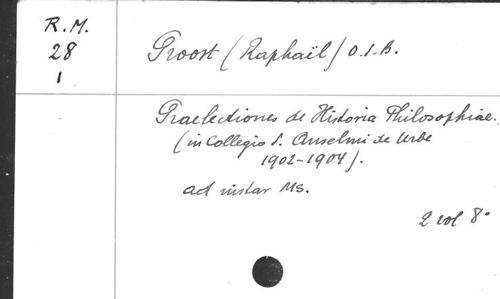 R.M.
28
1
Proost (Raphaël) O.S.B.
Praelectiones de Historia Philosophiae.
(in Collegio S. Anselmi de Urbe
1902-1904).
ad instar Ms.
2 vol 8°